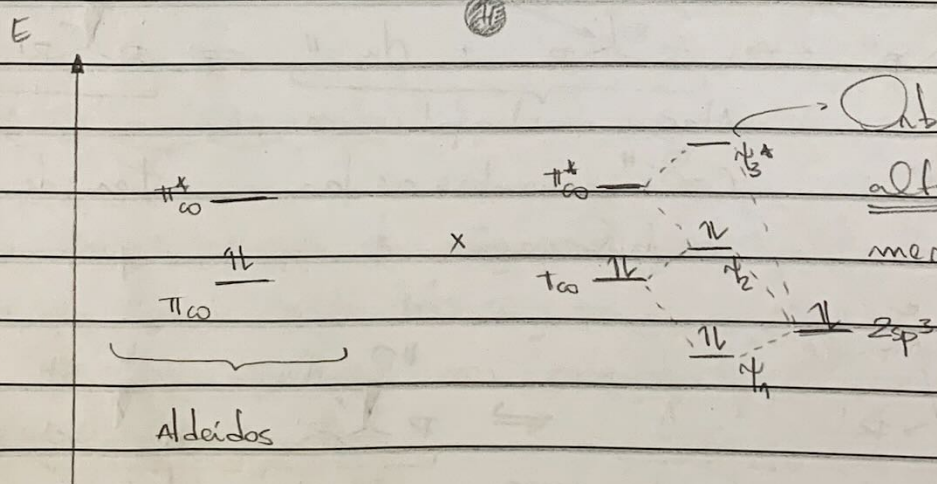 E
π*CO
πCO
Aldeídos
x
π*CO
πCO
ψ3*
ψ2
ψ1
2sp³
alt